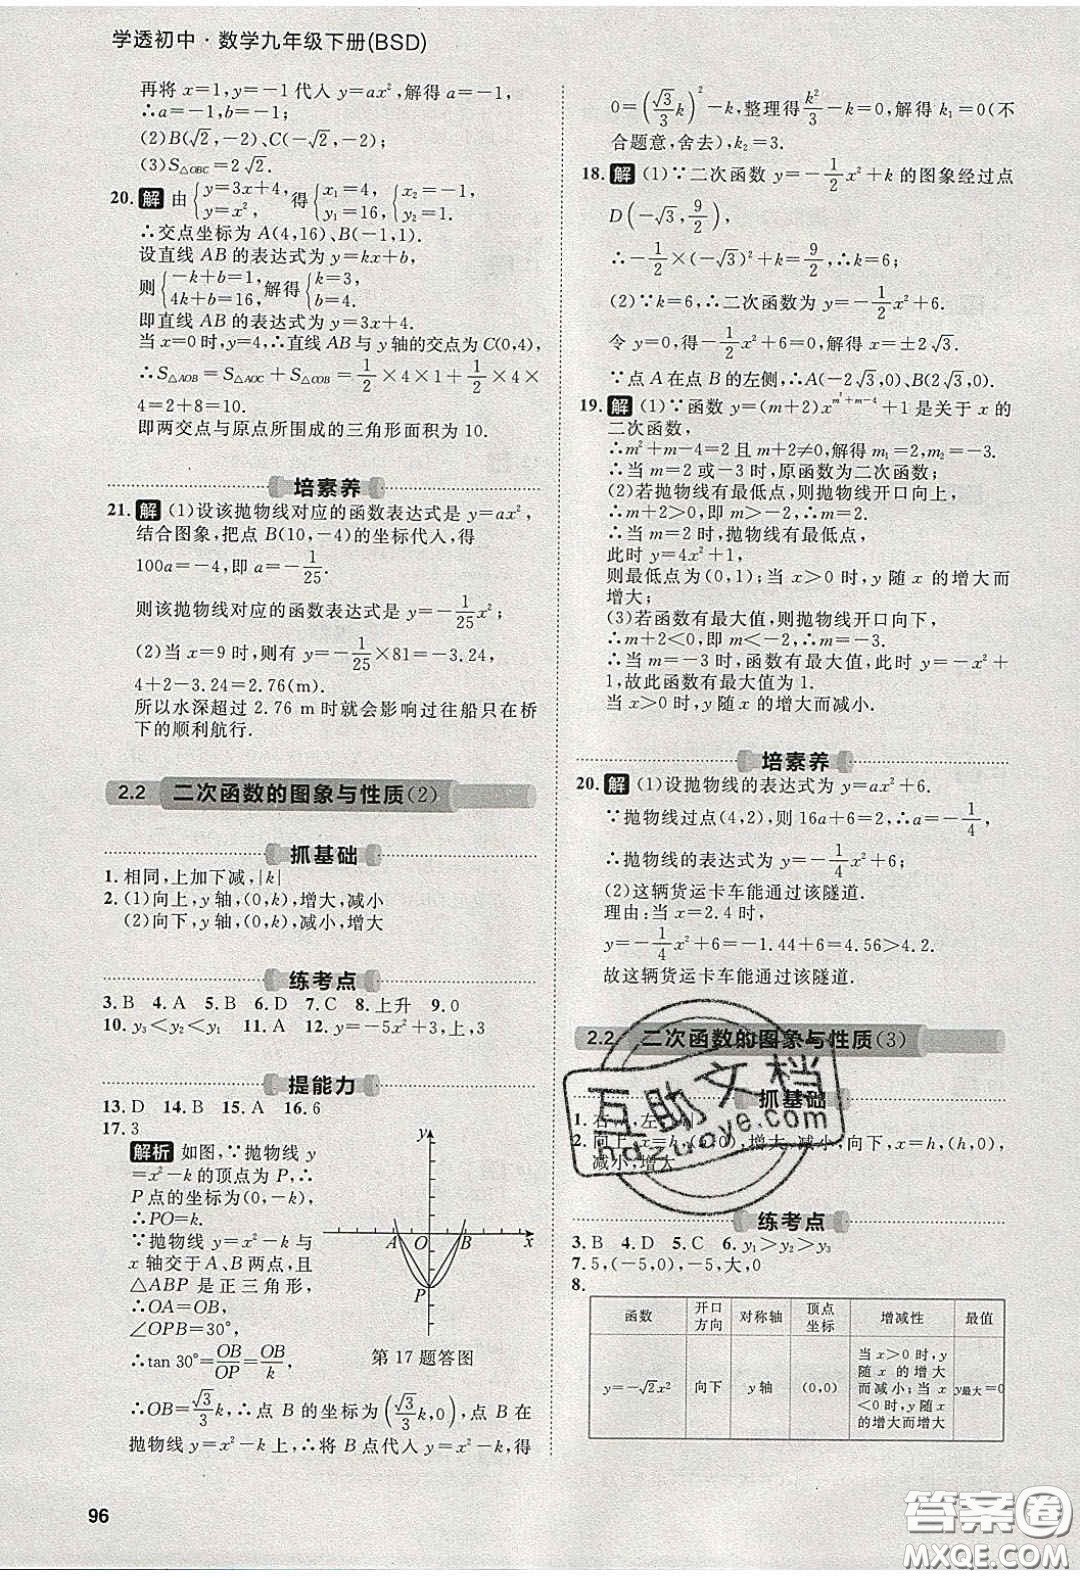 学透初中·数学九年级下册(BSD)
再将 x=1,y=-1代入 y=ax²,解得 a=-1,
∴a=-1,b=-1;
(2)B(√2,-2)、C(-√2,-2);
(3)S△OBC=2√2.
20. 解 由{y=3x+4, y=x², 得{x₁=4, y₁=16, {x₂=-1, y₂=1.
∴交点坐标为 A(4,16)、B(-1,1).
设直线 AB 的表达式为 y=kx+b,
则{-k+b=1, 4k+b=16, 解得{k=3, b=4,
即直线 AB 的表达式为 y=3x+4.
当 x=0 时,y=4,∴直线 AB 与 y 轴的交点为 C(0,4),
∴S△AOB=S△AOC+S△COB=1/2×4×1+1/2×4×
4=2+8=10.
即两交点与原点所围成的三角形面积为 10.
培素养
21. 解 (1)设该抛物线对应的函数表达式是 y=ax²,
结合图象,把点 B(10,-4)的坐标代入,得
100a=-4,即 a=-1/25.
则该抛物线对应的函数表达式是 y=-1/25x²;
(2)当 x=9 时,则有 y=-1/25×81=-3.24,
4+2-3.24=2.76(m).
所以水深超过 2.76 m 时就会影响过往船只在桥
下的顺利航行.
2.2 二次函数的图象与性质(2)
抓基础
1. 相同,上加下减,|k|
2. (1)向上,y 轴,(0,k),增大,减小
(2)向下,y 轴,(0,k),减小,增大
练考点
3. B 4. A 5. B 6. D 7. C 8. 上升 9. 0
10. y₃<y₂<y₁ 11. A 12. y=-5x²+3,上,3
提能力
13. D 14. B 15. A 16. 6
17. 3
解析 如图,∵抛物线 y
=x²-k 的顶点为 P,∴
P 点的坐标为(0,-k),
∴PO=k.
∵抛物线 y=x²-k 与
x 轴交于 A、B 两点,且
△ABP 是正三角形,
∴OA=OB,
∠OPB=30°,
∴tan 30°=OB/OP=OB/k
y
A O B x
P
第 17 题答图
∴OB=√3/3k,∴点 B 的坐标为(√3/3k,0),点 B 在
抛物线 y=x²-k 上,∴将 B 点代入,得
0=(√3/3k)²-k,整理得k²/3-k=0,解得 k₁=0(不
合题意,舍去),k₂=3.
18. 解 (1)∵二次函数 y=-1/2x²+k 的图象经过点
D(-√3,9/2),
∴-1/2×(-√3)²+k=9/2,∴k=6;
(2)∵k=6,∴二次函数为 y=-1/2x²+6.
令 y=0,得-1/2x²+6=0,解得 x=±2√3.
∵点 A 在点 B 的左侧,∴A(-2√3,0)、B(2√3,0).
19. 解 (1)∵函数 y=(m+2)x^(m²+m-4)+1 是关于 x 的
二次函数,
∴m²+m-4=2 且 m+2≠0,解得 m₁=2,m₂=-3.
∴当 m=2 或-3 时,原函数为二次函数;
(2)若抛物线有最低点,则抛物线开口向上,
∴m+2>0,即 m>-2,∴m=2.
∴当 m=2 时,抛物线有最低点,
此时 y=4x²+1,
则最低点为(0,1);当 x>0 时,y 随 x 的增大而
增大;
(3)若函数有最大值,则抛物线开口向下,
∴m+2<0,即 m<-2,∴m=-3.
∴当 m=-3 时,函数有最大值,此时 y=-x²+
1,故此函数有最大值为 1.
当 x>0 时,y 随 x 的增大而减小.
培素养
20. 解 (1)设抛物线的表达式为 y=ax²+6.
∵抛物线过点(4,2),则 16a+6=2,∴a=-1/4,
∴抛物线的表达式为 y=-1/4x²+6;
(2)这辆货运卡车能通过该隧道.
理由:当 x=2.4 时,
y=-1/4x²+6=-1.44+6=4.56>4.2.
故这辆货运卡车能通过该隧道.
2.2 二次函数的图象与性质(3)
抓基础
1. 右
2. 向上,x=h,(h,0),增大,减小,向下,x=h,(h,0),
减小,增大
练考点
3. B 4. D 5. C 6. y₁>y₂>y₃
7. 5,(-5,0),-5,大,0
8.
函数 开口方向 对称轴 顶点坐标 增减性 最值
y=-√2x² 向下 y 轴 (0,0) 当 x>0 时,y 随 x 的增大而减小;当 x<0 时,y 随 x 的增大而增大 y最大=0
互助文档
hdzuoye.com
96
答案圈
MXQE.COM